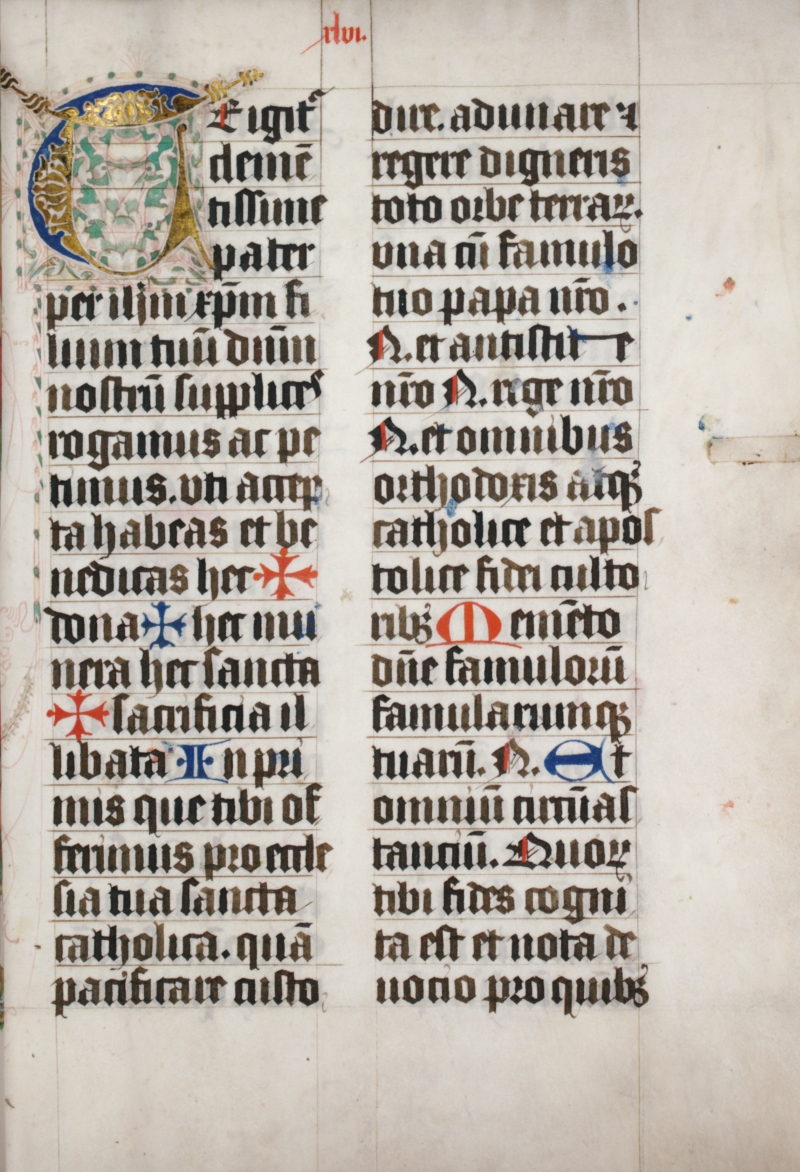 xlvi.
TEigit᷑
clemē
tissime
pater
per ihm xp̄m fi
lium tuū dnm̄
nostrū supplices
rogamus ac pe
timus. vti accep
ta habeas et be
nedicas hec ✠
dona ✠ hec mu
nera hec sancta
✠ sacrificia il
libata In pri
mis que tibi of
ferimus pro eccle
sia tua sancta
catholica. quā
pacificare custo
dire. adunare ⁊
regere digneris
toto orbe terraꝝ.
vna cū famulo
tuo papa nr̄o.
N. et antistite
nr̄o N. rege nr̄o
N. et omnibus
orthodoxis atqꝫ
catholice et apos
tolice fidei culto
ribꝫ Memēto
dn̄e famuloꝝū
famularumqꝫ
tuarū. N. Et
omniū circūas
tanciū. Quoꝝ
tibi fides cogni
ta est et nota de
uocio pro quibꝫ